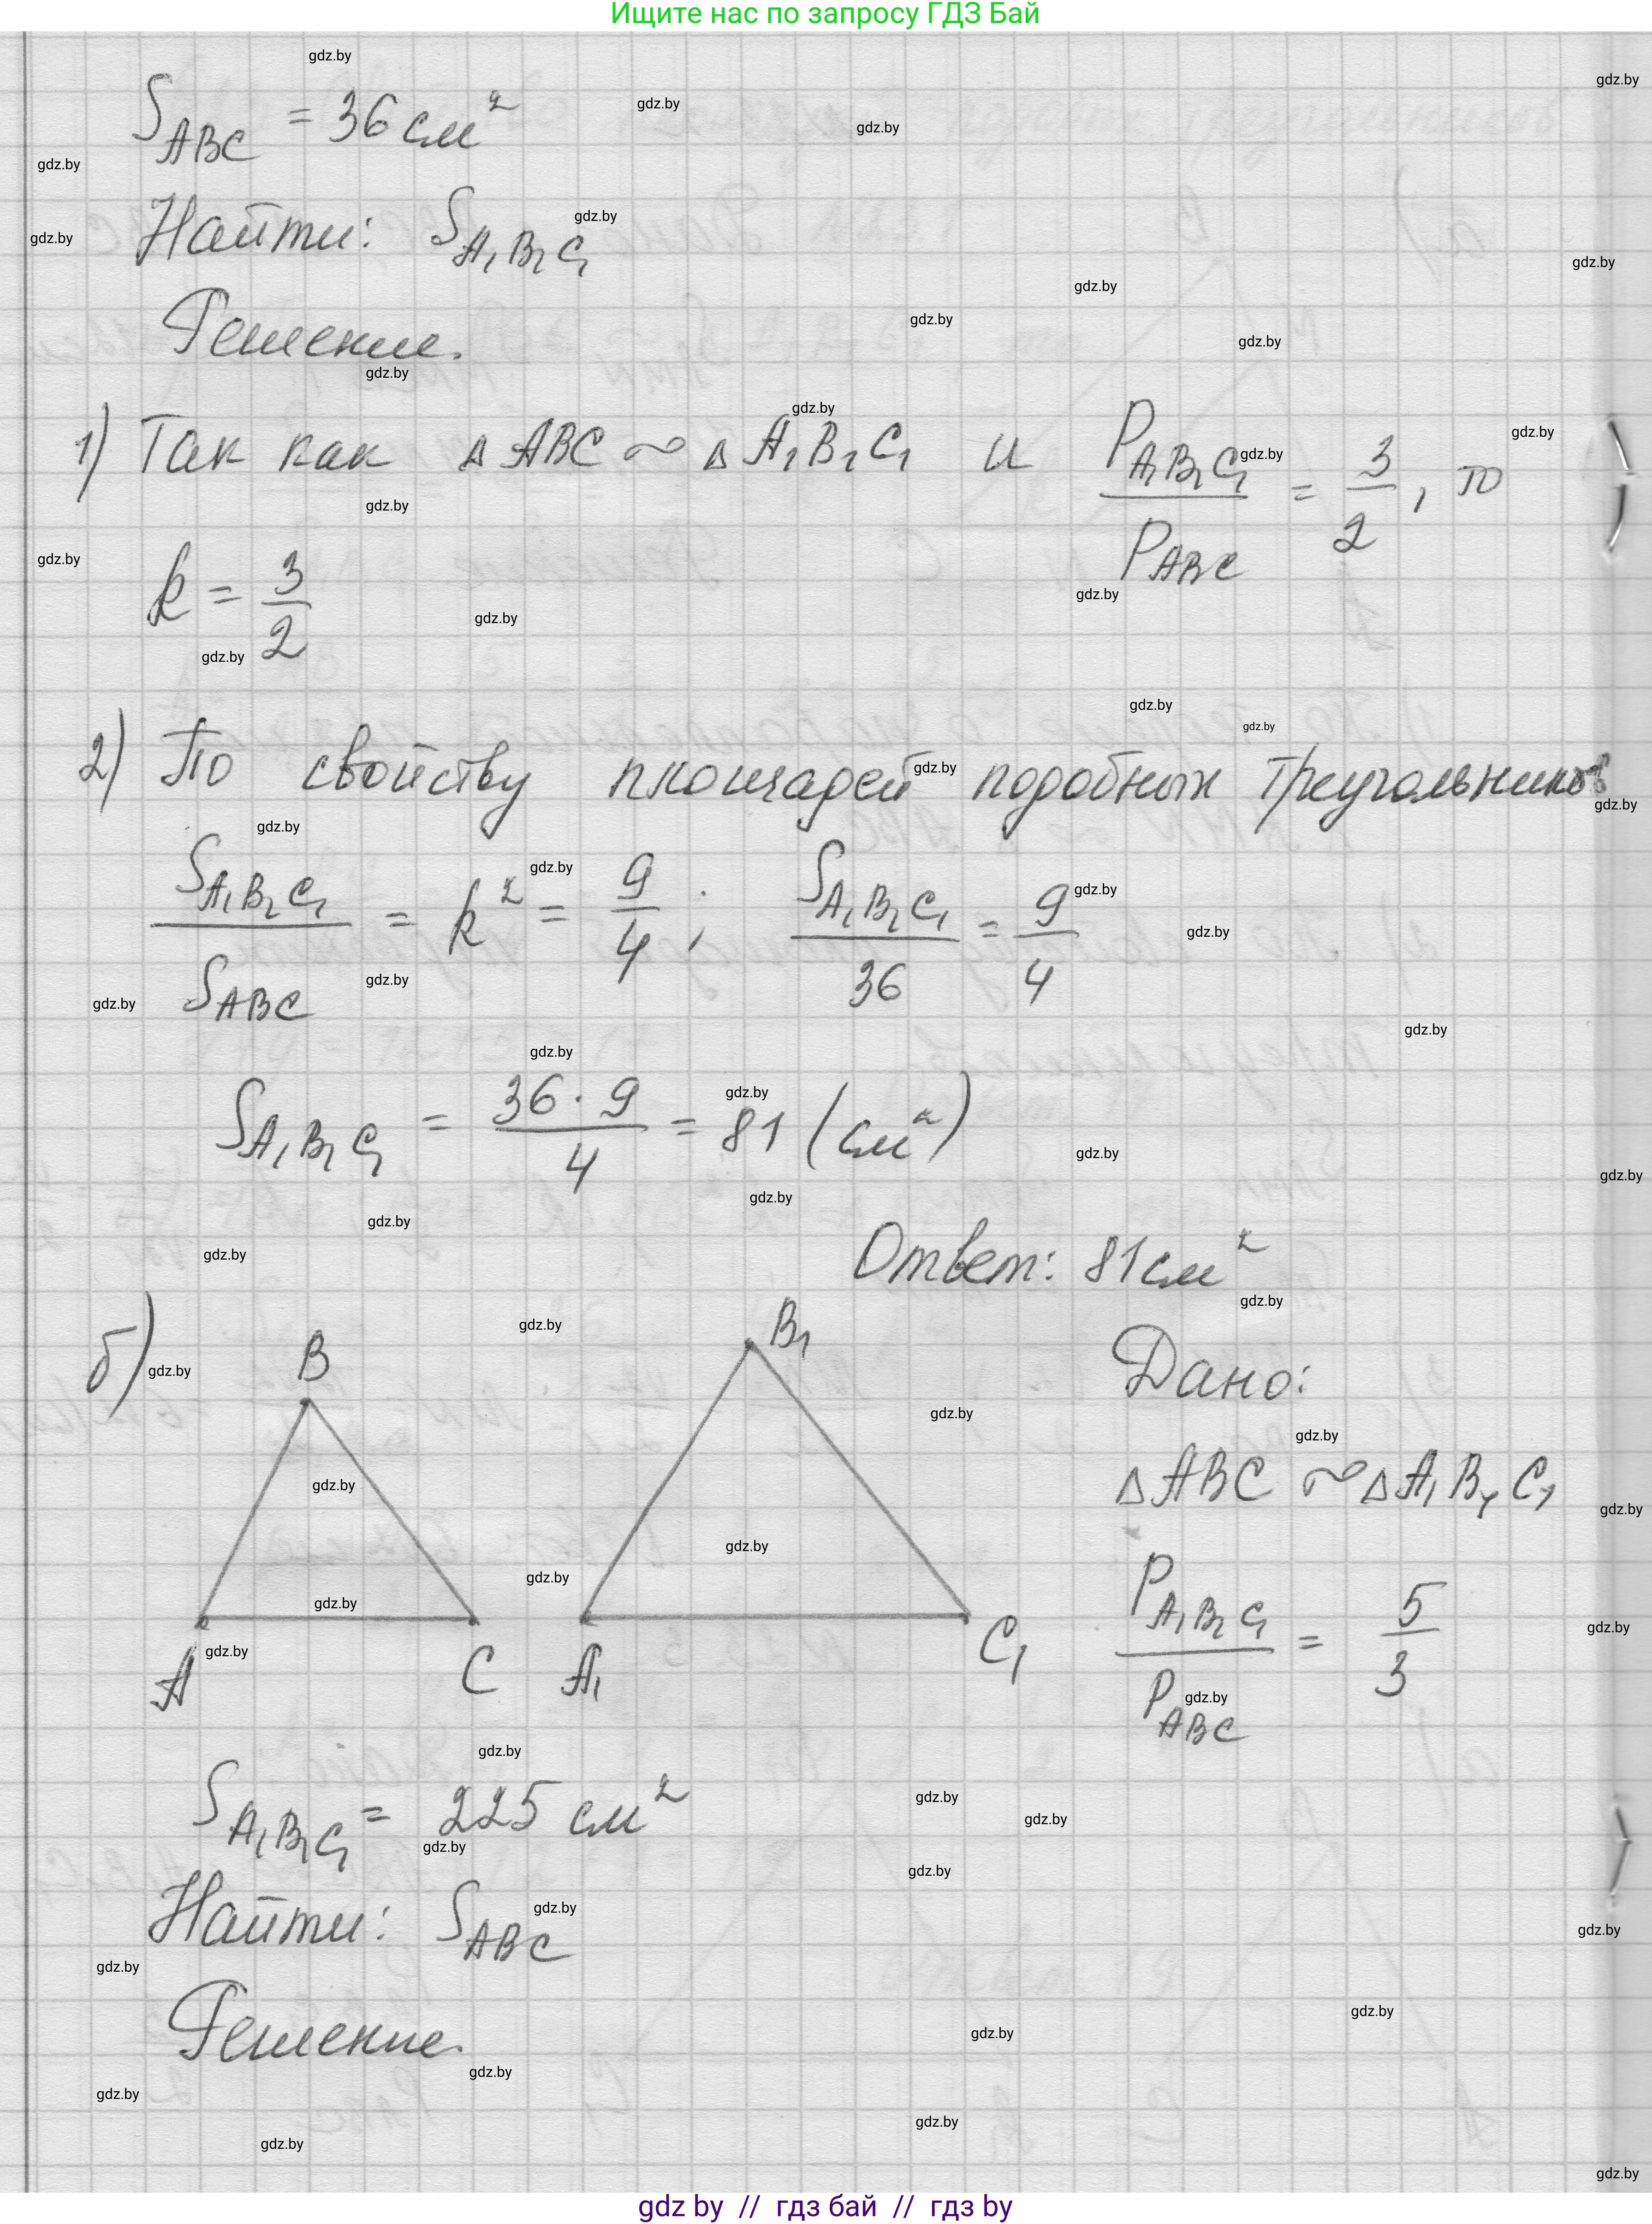 Ищите нас по запросу ГДЗ Бай
S_ABC = 36 см²
Найти: S_A₁B₁C₁
Решение.
1) Так как △ABC ~ △A₁B₁C₁ и P_A₁B₁C₁ / P_ABC = 3/2, то
k = 3/2
2) По свойству площадей подобных треугольников
S_A₁B₁C₁ / S_ABC = k² = 9/4; S_A₁B₁C₁ / 36 = 9/4
S_A₁B₁C₁ = 36 · 9 / 4 = 81 (см²)
Ответ: 81 см²
б)
B
B₁
Дано:
△ABC ~ △A₁B₁C₁
P_A₁B₁C₁ / P_ABC = 5/3
A
C
A₁
C₁
S_A₁B₁C₁ = 225 см²
Найти: S_ABC
Решение.
gdz.by
gdz by // гдз бай // гдз by